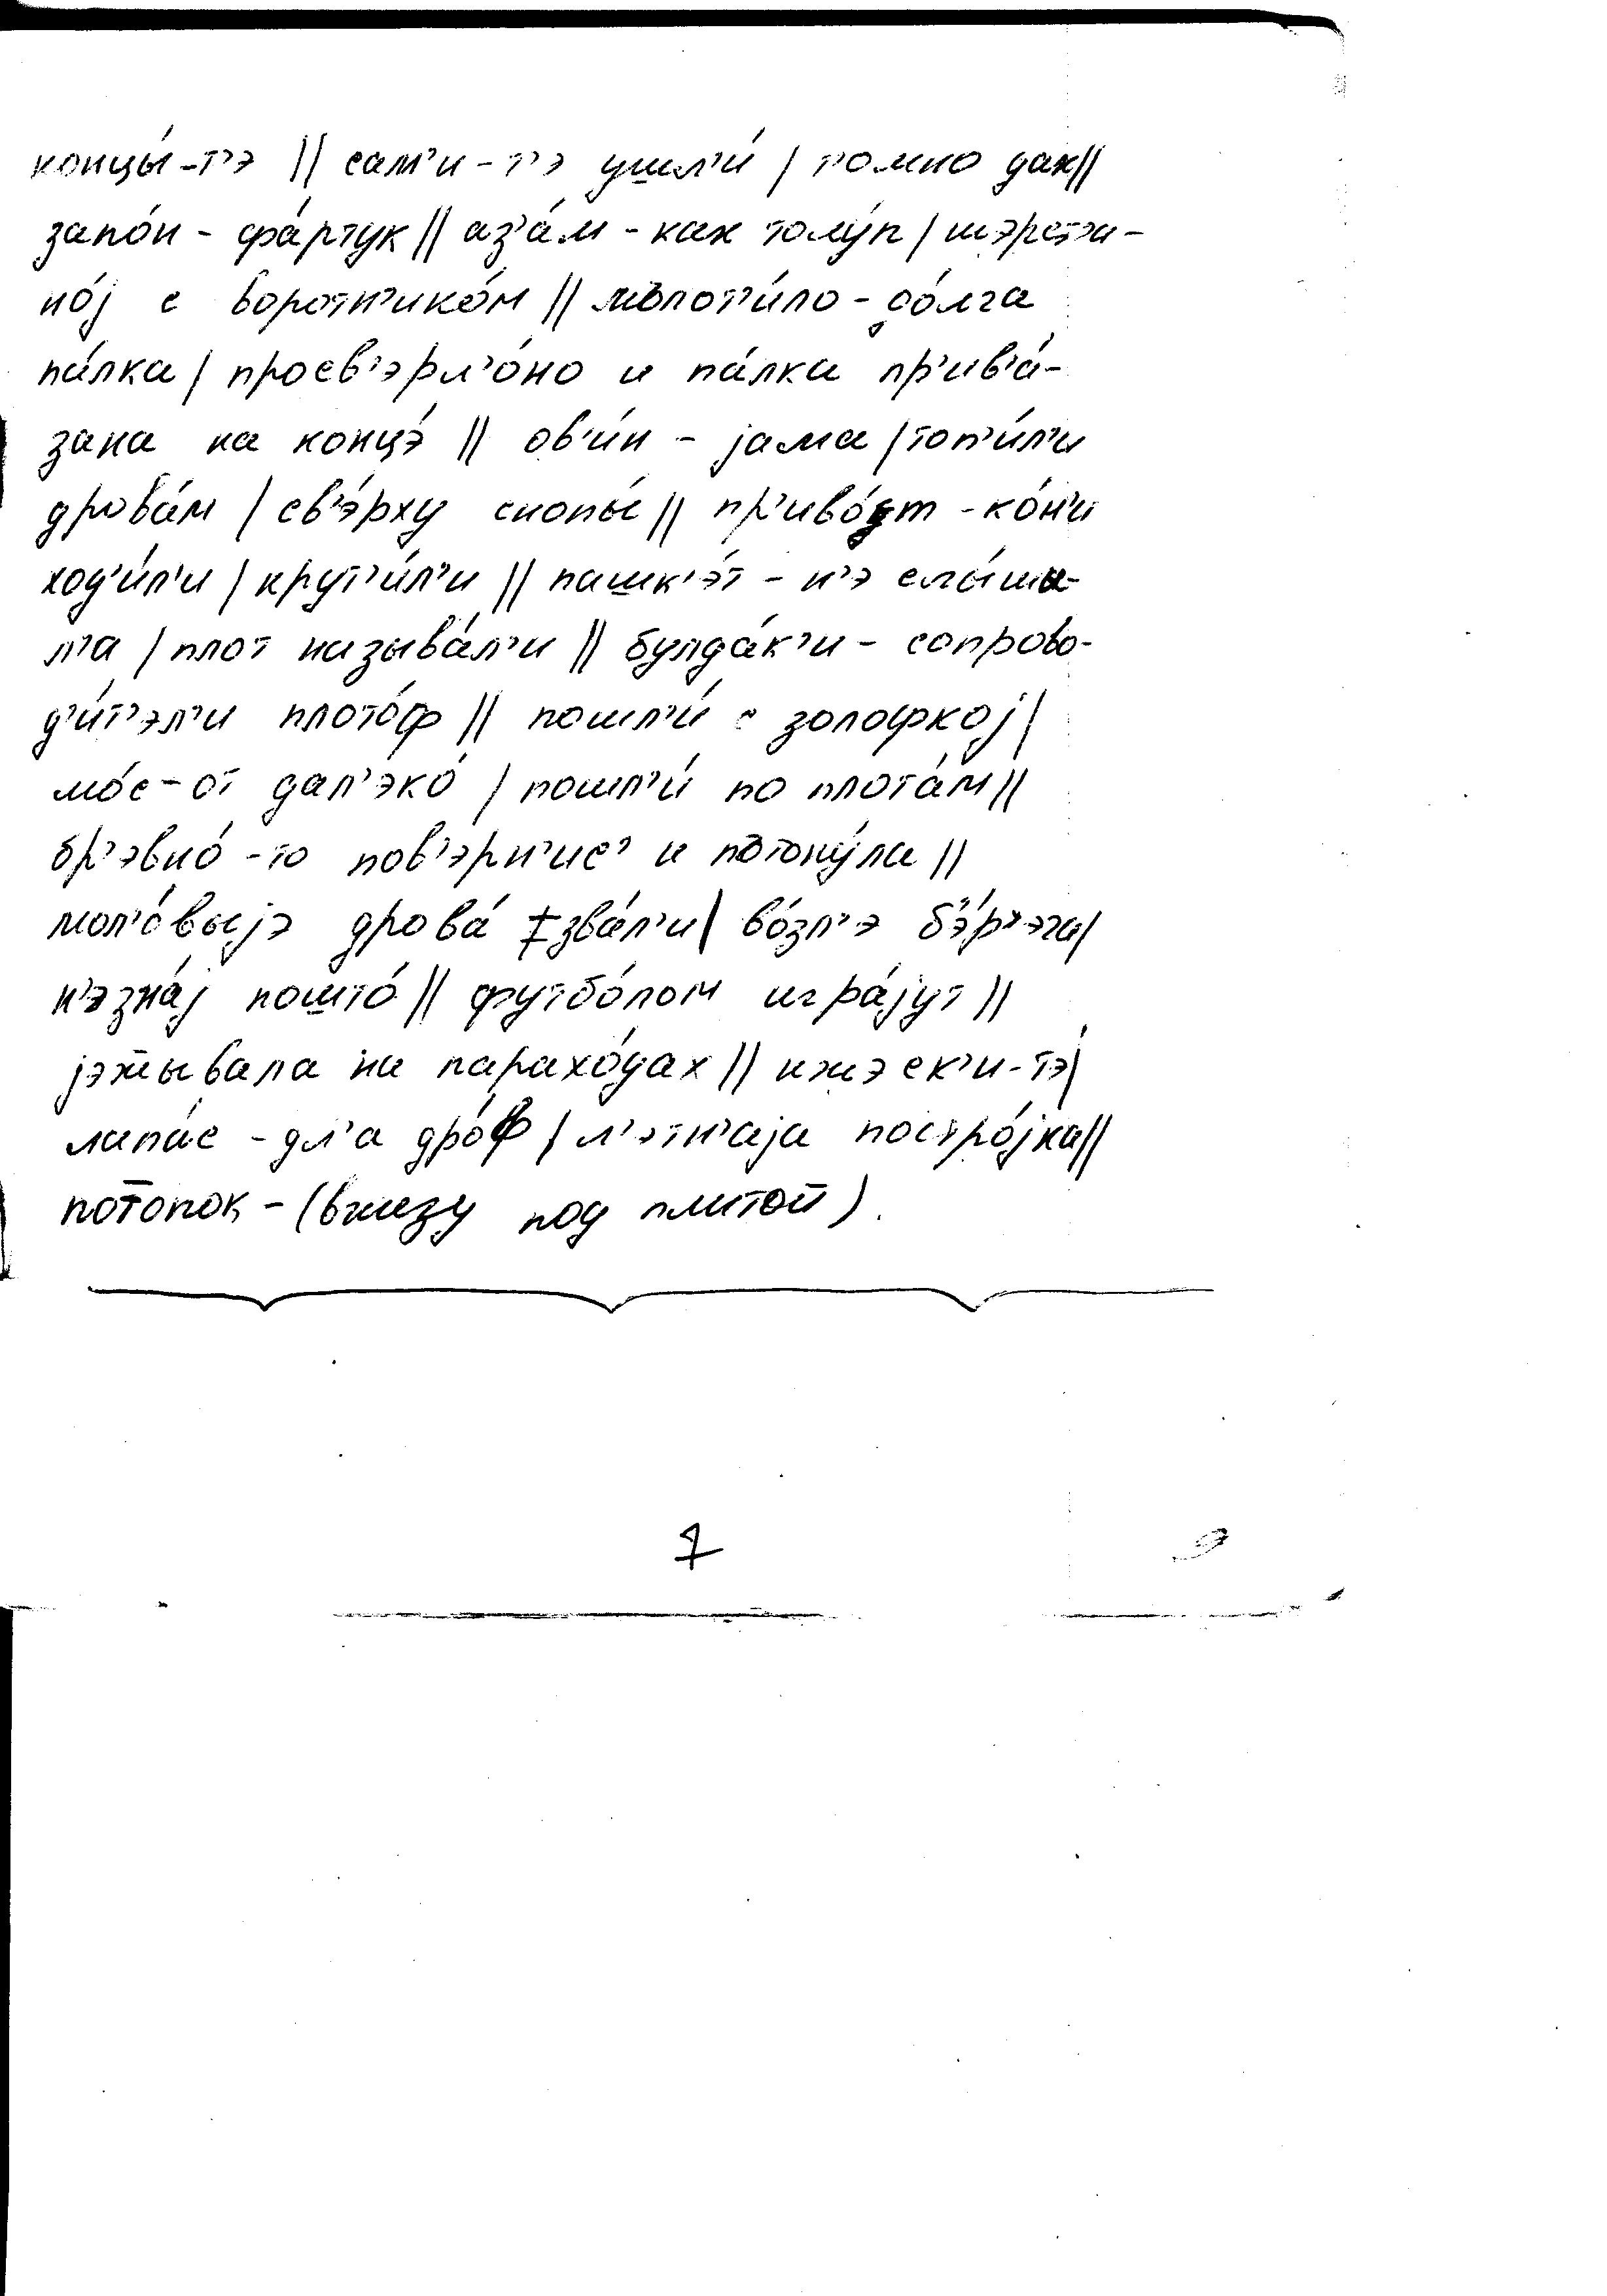 концы́-т'э || сам'и-т'э ушл'и́ | томно дак ||
запо́н - фа́ртук || аз'а́м - как толу́п | шэрст'а-
но́j с воротн'ико́м || молот'и́ло - до́лга
па́лка | просв'эрл'о́но и па́лка пр'ив'а́-
зана на концэ́ || ов'и́н - jама | топ'и́л'и
дрова́м | св'э́рху снопы́ || пр'иво́т - ко́н'и
ход'и́л'и | крут'и́л'и || пашк'э́т - н'э слы́ша-
ла | плот называ́л'и || булда́к'и - сопрово-
д'и́т'эл'и плото́ф || пошл'и́ с золофкоj |
мо́с-от дал'эко́ | пошл'и́ по плота́м ||
бр'эвно́-то пов'эрн'ис' и потону́ла ||
мол'о́выjэ дрова́ зва́л'и | во́зл'э б'э́р'эга |
н'эзна́j пошто́ || футбо́лом игра́jут ||
jэжывала на парахо́дах || ижэск'и-тэ |
лапа́с - дл'а дро́ф | л'этн'аjа постро́jка ||
потопок - (внизу под плитой).
7